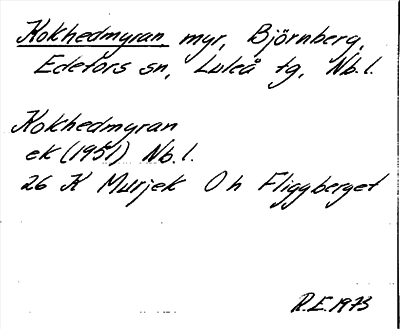 Kokhedmyran, myr, Björnberg,
Edefors sn, Luleå tg, Nb.l.
Kokhedmyran
ek (1951) Nb.l.
26 K Murjek 0 h Fliggberget
R.E. 1973